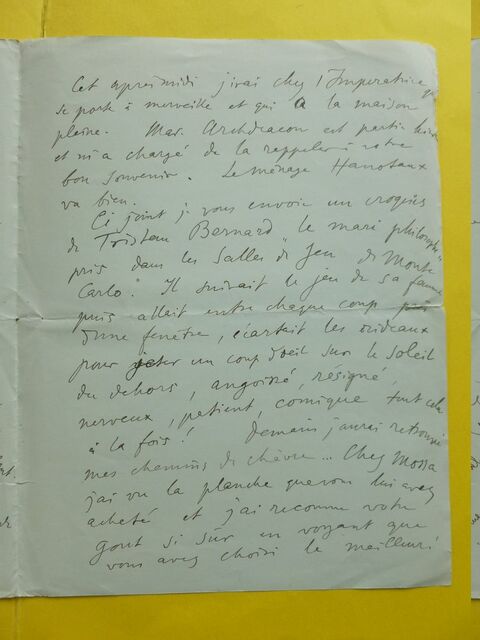 Cet après midi j'irai chez l'Imperatrice qui
se porte à merveille et qui a la maison
pleine. Mme Archdeacon est partie hier
et m'a chargé de la rappeler à votre
bon souvenir. Le ménage Hanotaux
va bien.
Ci joint je vous envoie un croquis
de Tristan Bernard "le mari philosophe"
pris dans les Salles de Jeu de Monte
Carlo". Il suivait le jeu de sa femme
puis allait entre chaque coup près
d'une fenêtre, écartait les rideaux
pour jeter un coup d'oeil sur le soleil
du dehors, angoissé, résigné,
nerveux, patient, comique tout cela
à la fois! Demain j'aurai retrouvé
mes chemins de chèvre... Chez Mossa
j'ai vu la planche que vous lui avez
acheté et j'ai reconnu votre
gout si sûr en voyant que
vous avez choisi le meilleur!